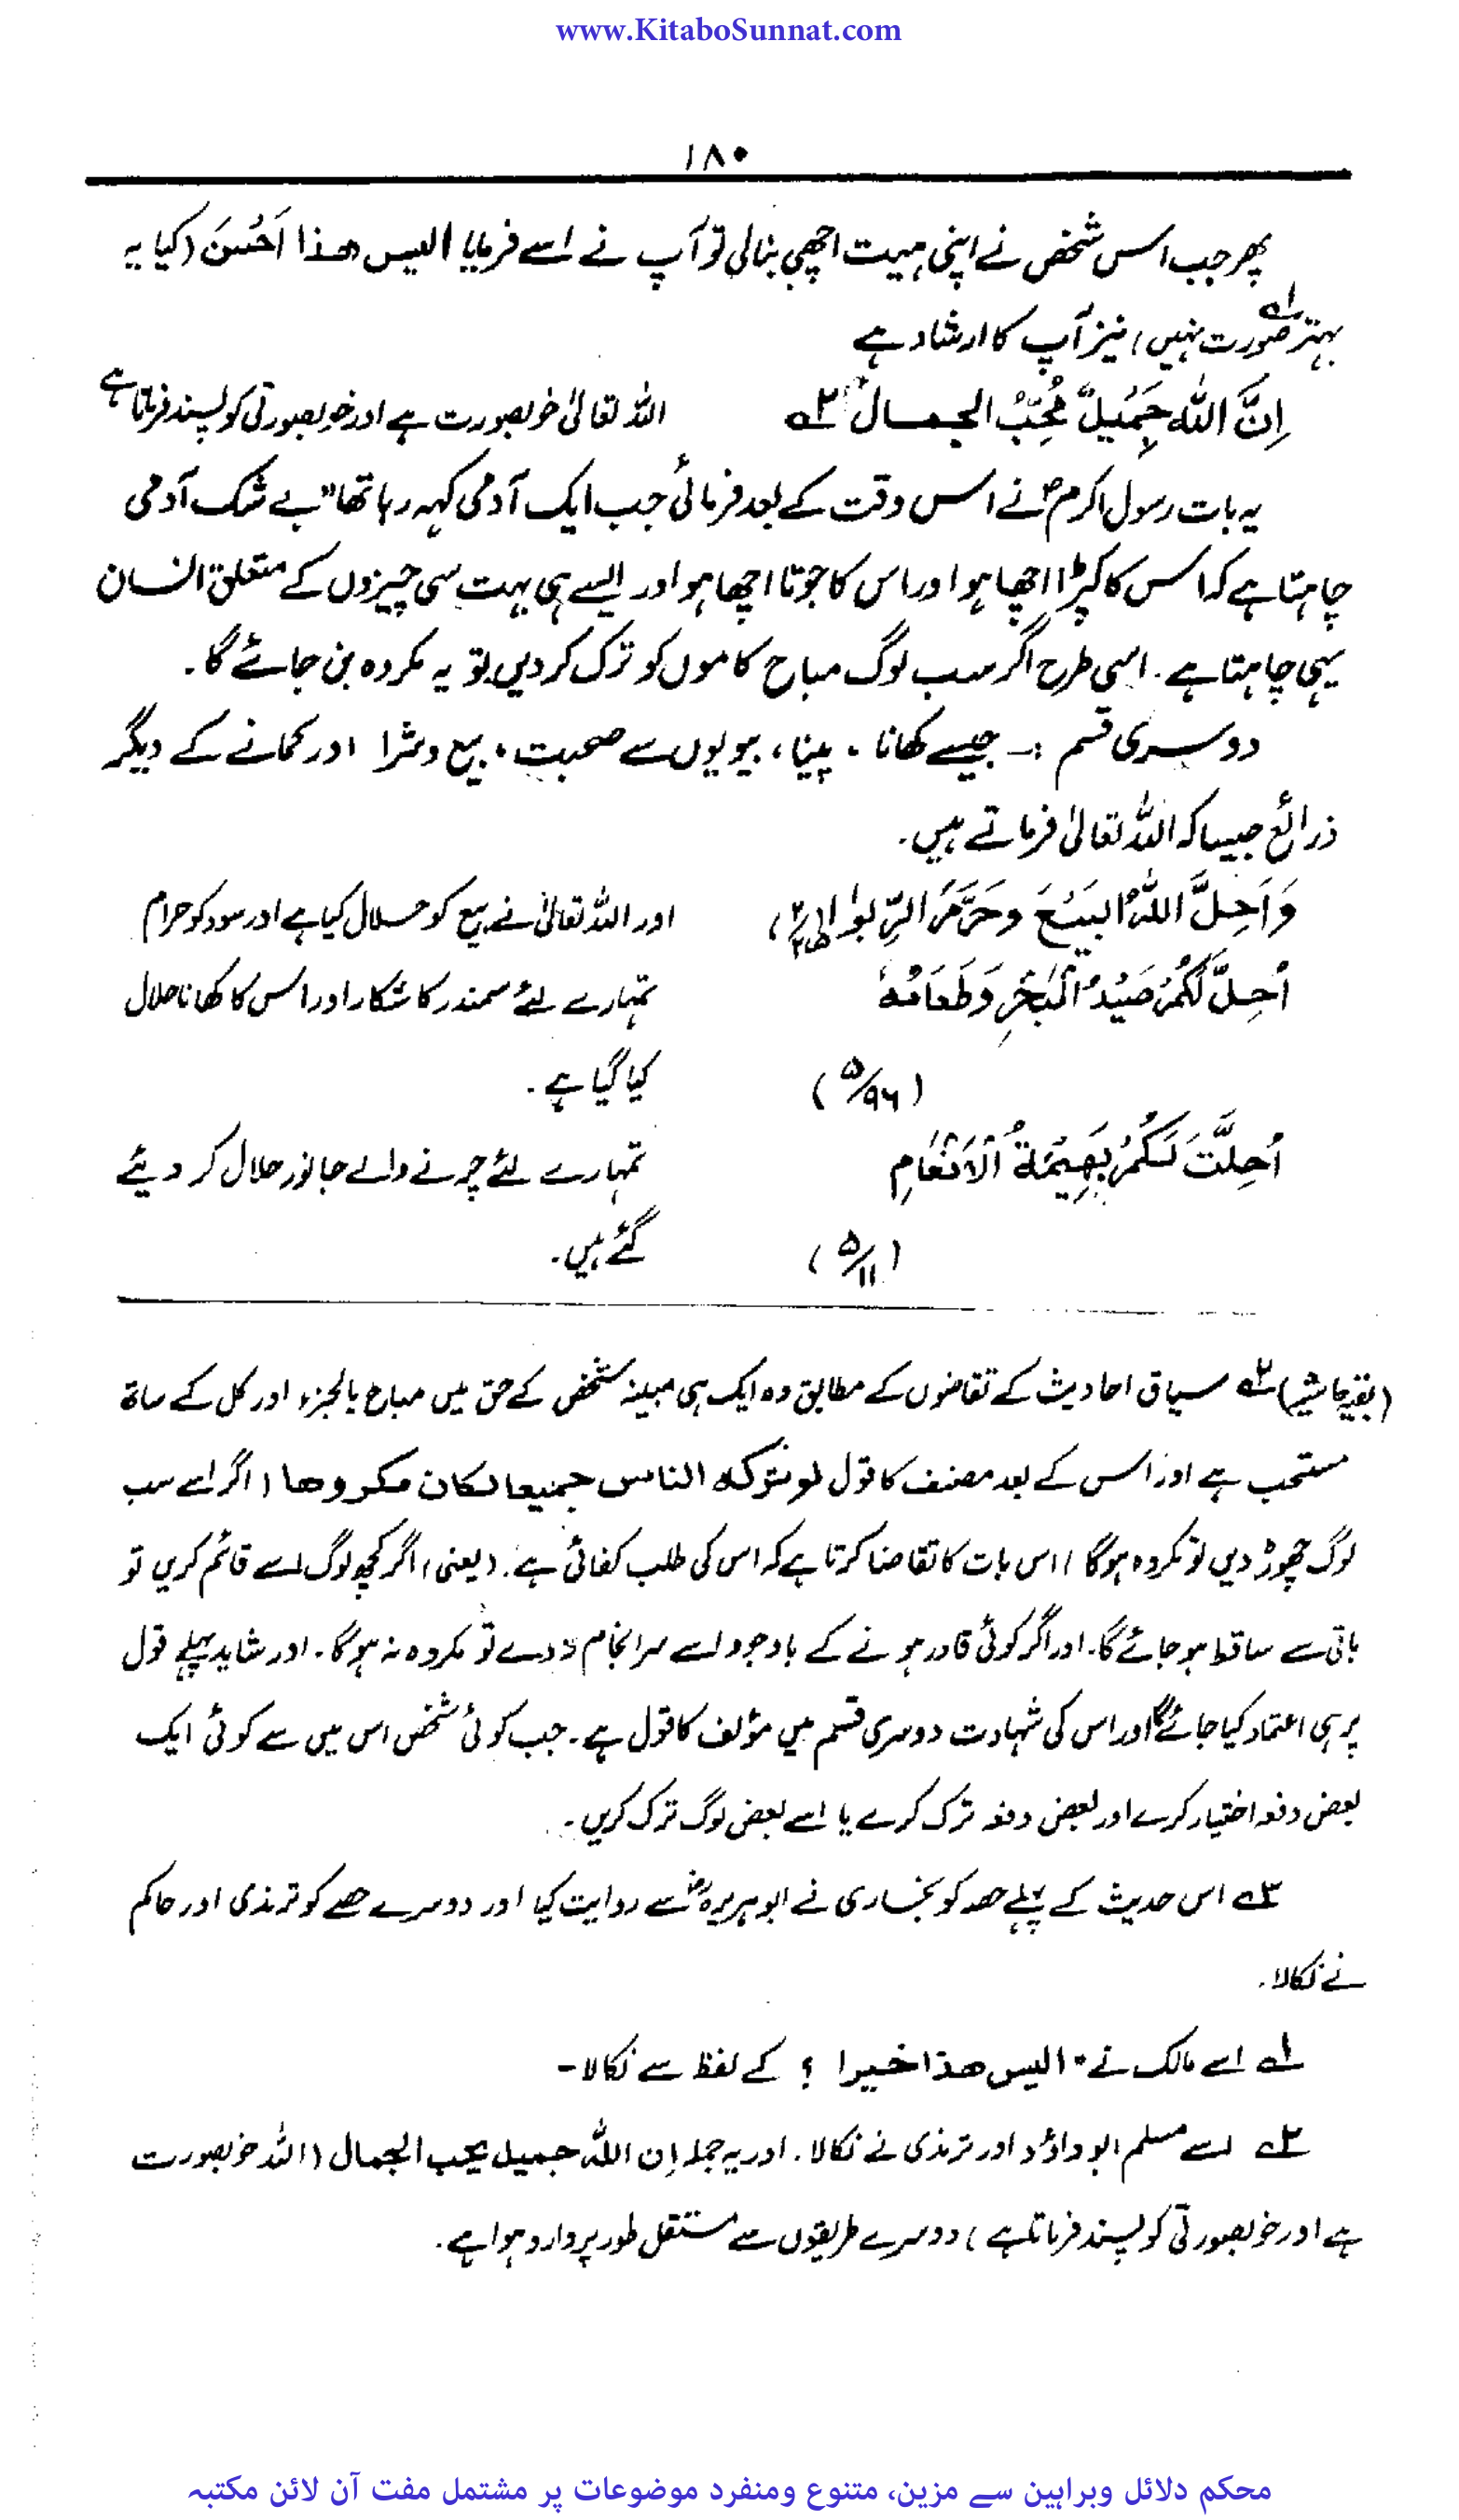 www.KitaboSunnat.com
۱۸۰
پھر جب اس شخص نے اپنی ہیت اچھی بنالی تو آپ نے اسے فرمایا الیس ھذا اَحْسَنَ (کیا یہ
بہتر صورت نہیں)؂۱ نیز آپ کا ارشاد ہے
اِنَّ اللّٰہ جَمِیْلٌ مُحِبُّ الجمال ؂۲ اللہ تعالیٰ خوبصورت ہے اور خوبصورتی کو پسند فرماتا ہے
یہ بات رسول اکرمؐ نے اس وقت کے بعد فرمائی جب ایک آدمی کہہ رہا تھا "بے شک آدمی
چاہتا ہے کہ اس کا کپڑا اچھا ہو اور اس کا جوتا اچھا ہو اور ایسے ہی بہت سی چیزوں کے متعلق انسان
یہی چاہتا ہے۔ اسی طرح اگر سب لوگ مباح کاموں کو ترک کر دیں تو یہ مکروہ بن جائے گا۔
دوسری قسم :۔ جیسے کھانا، پینا، بیویوں سے صحبت، بیع و شرا اور کمانے کے دیگر
ذرائع جیسا کہ اللہ تعالیٰ فرماتے ہیں۔
وَاَحِلَّ اللّٰہُ البَیْعَ وحَرَّمَ الرِّبٰوا (۲/۲۷۵) اور اللہ تعالیٰ نے بیع کو حلال کیا ہے اور سود کو حرام
اُحِلَّ لَکُمْ صَیْدُ الْبَحْرِ وَطَعَامُہٗ تمہارے لئے سمندر کا شکار اور اس کا کھانا حلال
(۵/۹۶) کیا گیا ہے۔
اُحِلَّتْ لَکُمْ بَھِیْمَۃُ الْاَنْعَامِ تمہارے لئے چرنے والے جانور حلال کر دیئے
(۵/۱۱) گئے ہیں۔
(بقیہ حاشیہ) ؂۲ سیاق احادیث کے تقاضوں کے مطابق وہ ایک ہی مبینہ شخص کے حق میں مباح بالجزء اور کل کے ساتھ
مستحب ہے اور اس کے بعد مصنف کا قول لو ترکہ الناس جمیعا لکان مکروھا (اگر اسے سب
لوگ چھوڑ دیں تو مکروہ ہوگا) اس بات کا تقاضا کرتا ہے کہ اس کی طلب کفائی ہے۔ (یعنی) اگر کچھ لوگ اسے قائم کریں تو
باقی سے ساقط ہو جائے گا۔ اور اگر کوئی قادر ہونے کے باوجود اسے سرانجام نہ دے تو مکروہ نہ ہوگا۔ اور شاید پہلے قول
پر ہی اعتماد کیا جائے گا اور اس کی شہادت دوسری قسم میں مؤلف کا قول ہے۔ جب کوئی شخص اس میں سے کوئی ایک
بعض دفعہ اختیار کرے اور بعض دفعہ ترک کرے یا اسے بعض لوگ ترک کریں۔
؂۳ اس حدیث کے پہلے حصہ کو بخاری نے ابو ہریرہؓ سے روایت کیا اور دوسرے حصے کو ترمذی اور حاکم
نے نکالا۔
؂۱ اسے مالک نے "الیس ھذا خیرا ؟ کے لفظ سے نکالا۔
؂۲ اسے مسلم ابوداؤد اور ترمذی نے نکالا۔ اور یہ جملہ اِن اللہ جمیل یحب الجمال (اللہ خوبصورت
ہے اور خوبصورتی کو پسند فرماتا ہے) دوسرے طریقوں سے مستقل طور پر وارد ہوا ہے۔
محکم دلائل وبراہین سے مزین، متنوع ومنفرد موضوعات پر مشتمل مفت آن لائن مکتبہ